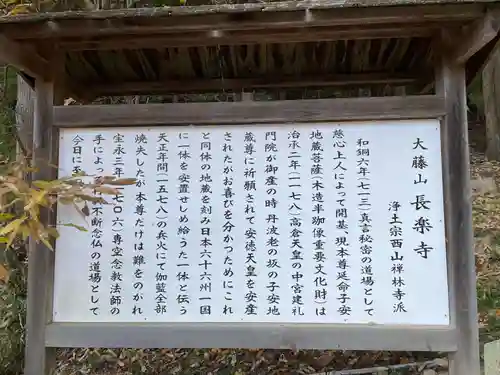 大藤山　長楽寺
浄土宗西山禅林寺派
和銅六年(七一三)真言秘密の道場として
慈心上人によって開基。現本尊延命子安
地蔵菩薩(木造半跏像重要文化財)は
治承二年(一一七八)高倉天皇の中宮建礼
門院が御産の時丹波老の坂の子安地
蔵尊に祈願されて安徳天皇を安産
されたがお喜びを分かつためにこれ
と同体の地蔵を刻み日本六十六州一国
に一体を安置せしめ給うた一体と伝う
天正年間(一五七八)の兵火にて伽藍全部
焼失したが本尊だけは難をのがれ
宝永三年(一七〇六)専空念教法師の
手によっ　不断念仏の道場として
今日に至